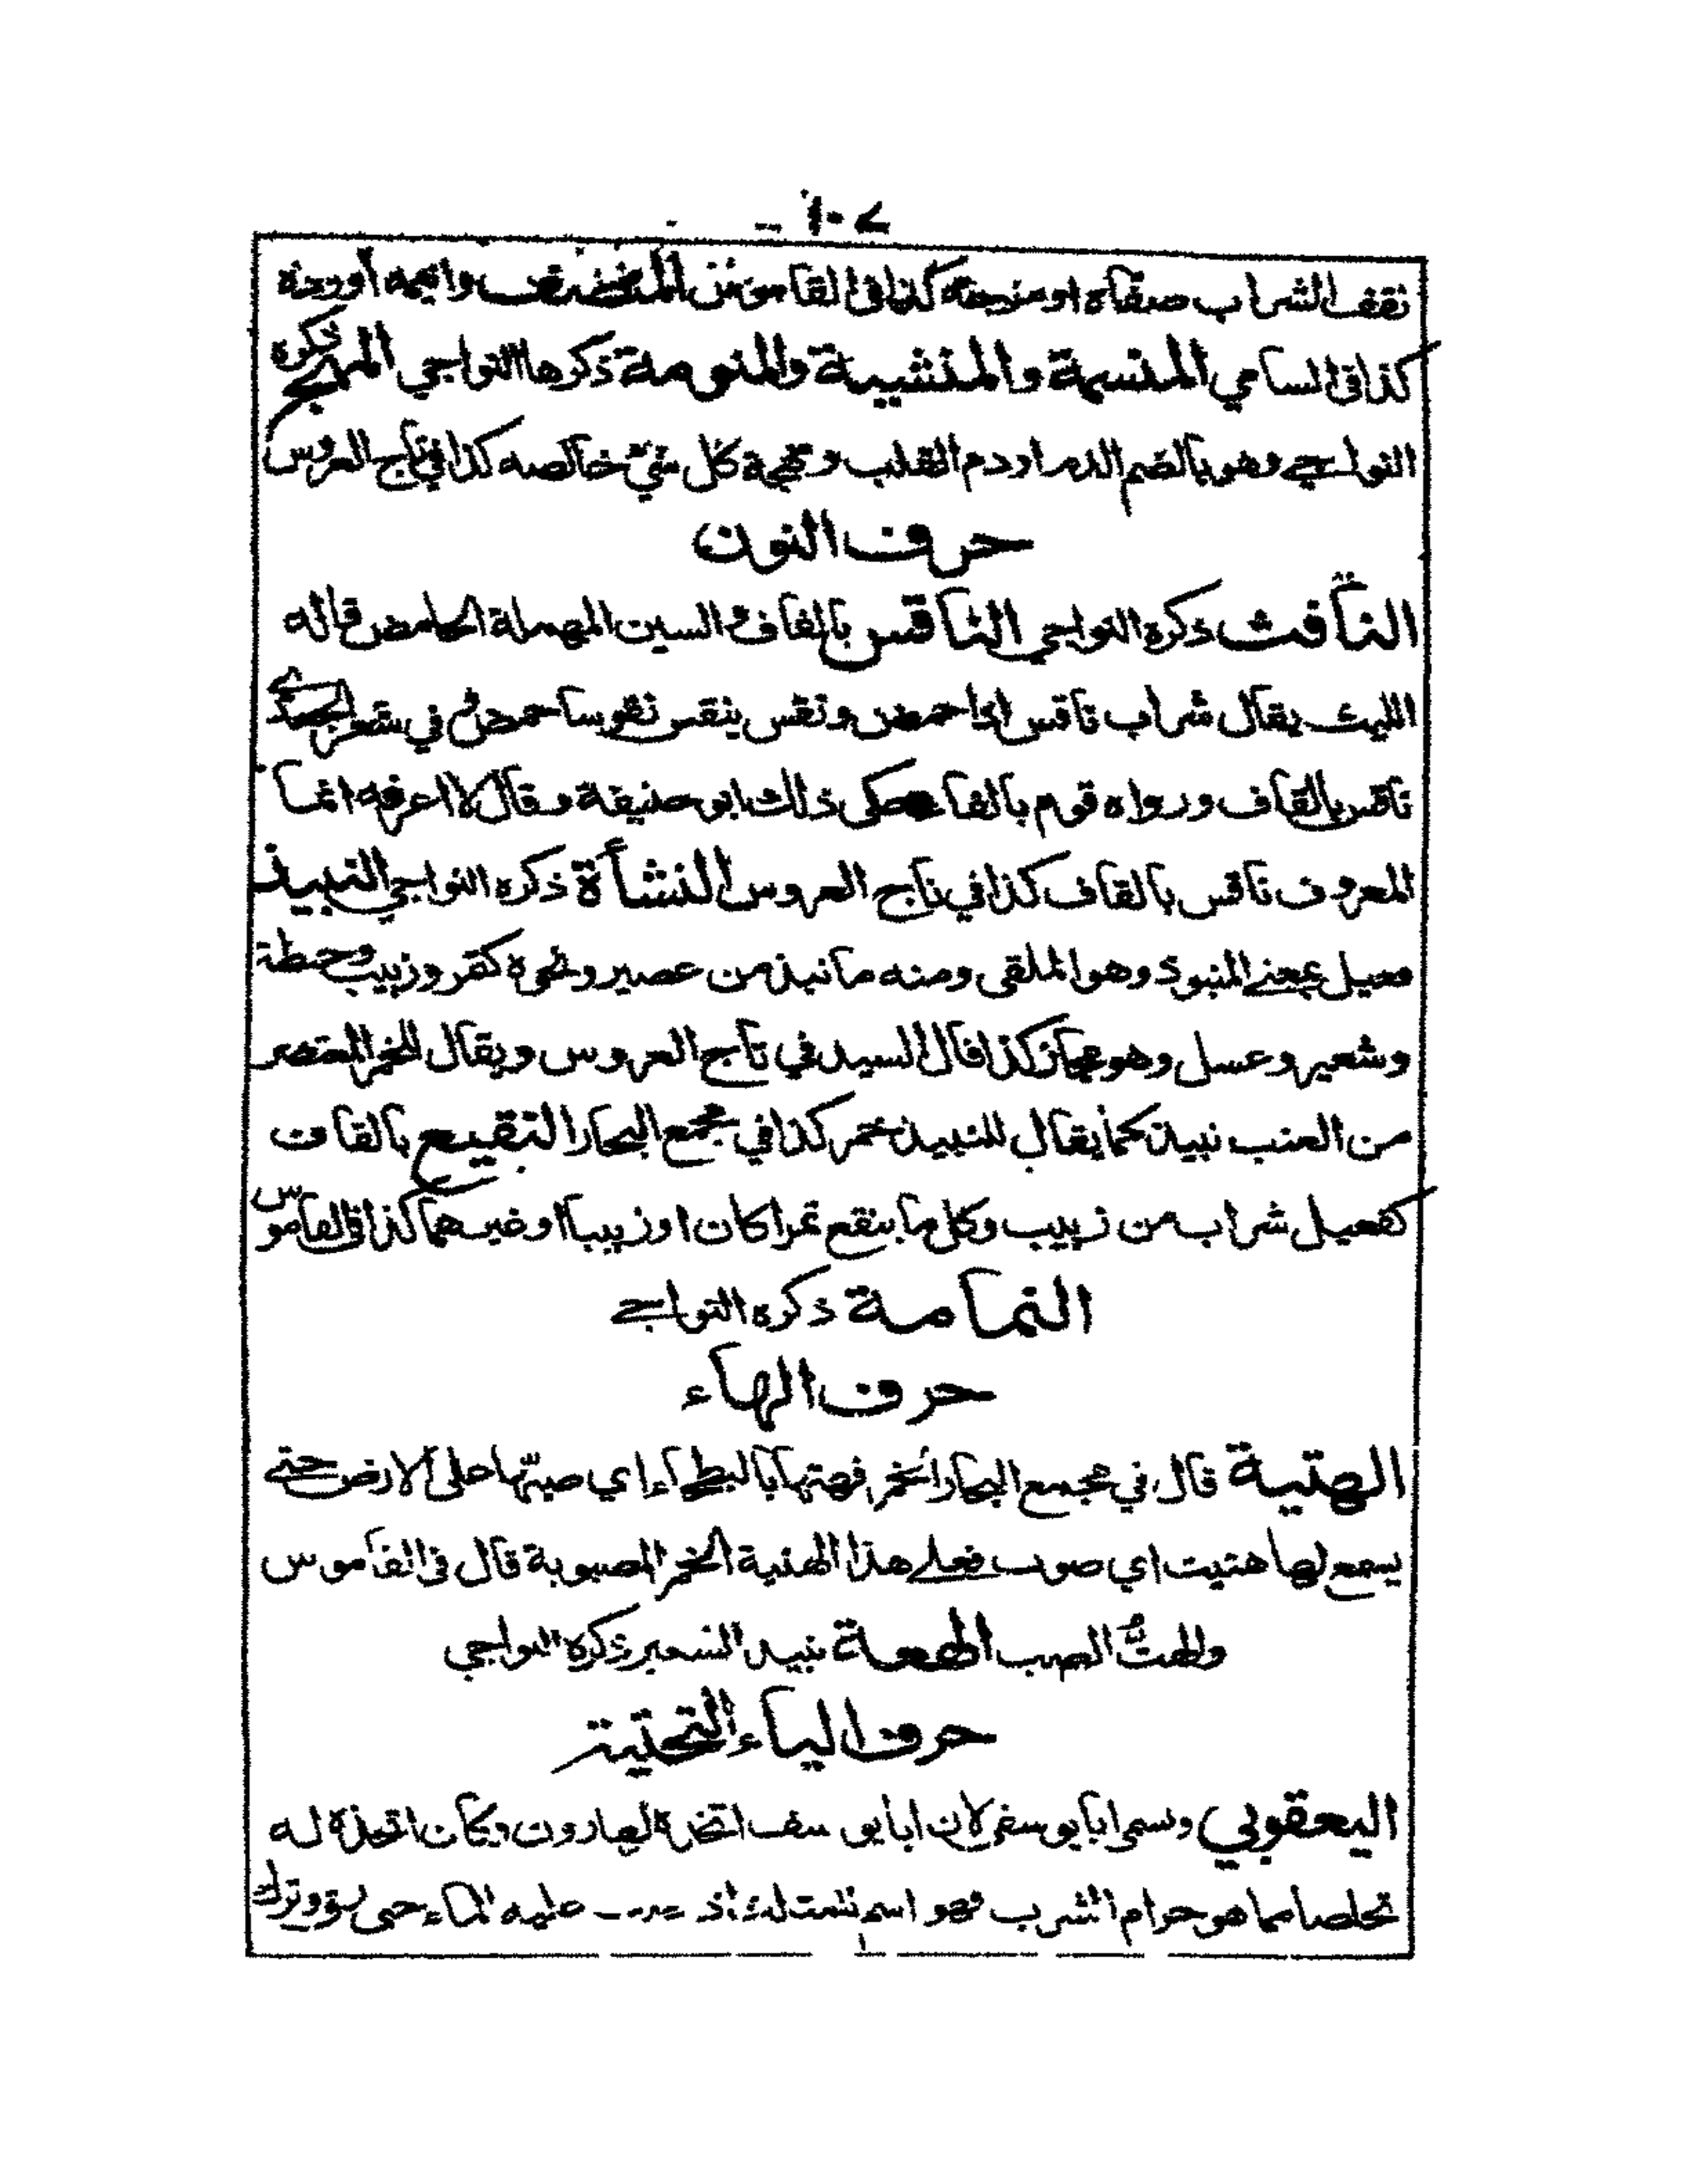 ١٠٧
نقف الشراب صفاه او مزجه كذا في القاموس
كذا في السامي المنسمة والمنشيبة والمنومة ذكرها النواجي المهج ذكره
النواجي وهو بالضم الدم او دم القلب و كل شيء خالصه كذا في تاج العروس
حرف النون
النافث ذكره النواجي الناقس بالقاف والسين المهملة الحامض قاله
الليث يقال شراب ناقس اذا حمض ونقس ينقس نقوسا حمض في شعر الجعدي
ناقس بالقاف ورواه قوم بالفاء حكى ذلك ابو حنيفة وقال لا اعرفه انما
المعروف ناقس بالقاف كذا في تاج العروس النشأة ذكره النواجي النبيذ
فعيل بمعنى المنبوذ وهو الملقى ومنه ما نبذ من عصير ونحوه كتمر وزبيب وحنطة
وشعير وعسل وهو مجاز كذا قال السيد في تاج العروس ويقال للخمر المعتصر
من العنب نبيذ كما يقال للنبيذ خمر كذا في مجمع البحار النقيع بالقاف
كفعيل شراب من زبيب وكل ما ينقع تمرا كان او زبيبا او غيرهما كذا في القاموس
النمامة ذكره النواجي
حرف الهاء
الهتية قال في مجمع البحار الخمر فهتها بالبطحاء اي صبتها على الارض حتى
يسمع لها هتيت اي صوت فعلى هذا الهتية الخمر المصبوبة قال في القاموس
والهت الصب الهعة نبيد الشعير ذكره النواجي
حرف الياء التحتية
اليعقوبي وسمى ابا يوسفي لان ابا يوسف اتخذه لهارون وكان اتخذه له
تخلصا مما هو حرام الشرب فهو اسم عليه الماء حتى وترك